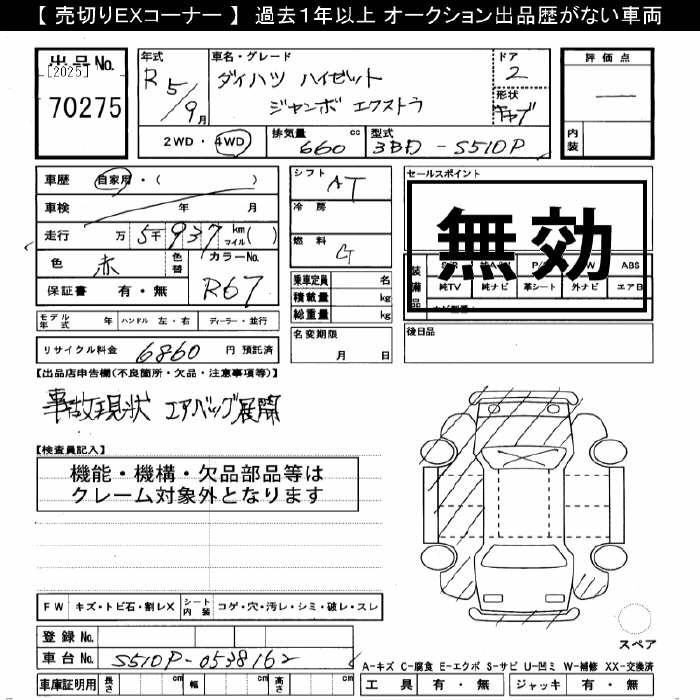 【 売切りEXコーナー 】 過去1年以上 オークション出品歴がない車両
出品No.
[2025]
70275
年式
R 5/9月
車名・グレード
ダイハツ ハイゼット
ジャンボ エクストラ
ドア
2
形状
キャブ
評価点
—
内装
2WD・4WD
排気量 660 cc
型式 3BD-S510P
車歴 自家用・( )
車検 年 月
走行 万 5千937 km マイル( )
色 赤 色替 カラーNo. R67
保証書 有・無
モデル年式 年 ハンドル 左・右 ディーラー・並行
リサイクル料金 6860 円 預託済
シフト AT
冷房
燃料 G
乗車定員 名
積載量 kg
総重量 kg
名変期限
月 日
セールスポイント
無効
装備品
ABS
純TV 純ナビ 革シート 外ナビ エアB
後日品
【出品店申告欄(不良箇所・欠品・注意事項等)】
事故現状 エアバッグ展開
【検査員記入】
機能・機構・欠品部品等は
クレーム対象外となります
FW キズ・トビ石・割レX シート内装 コゲ・穴・汚レ・シミ・破レ・スレ
登録No.
車台No. S510P-0538162
車庫証明用 長さ cm 幅 cm 高さ cm
スペア
A-キズ C-腐食 E-エクボ S-サビ U-凹ミ W-補修 XX-交換済
工具 有・無 ジャッキ 有・無